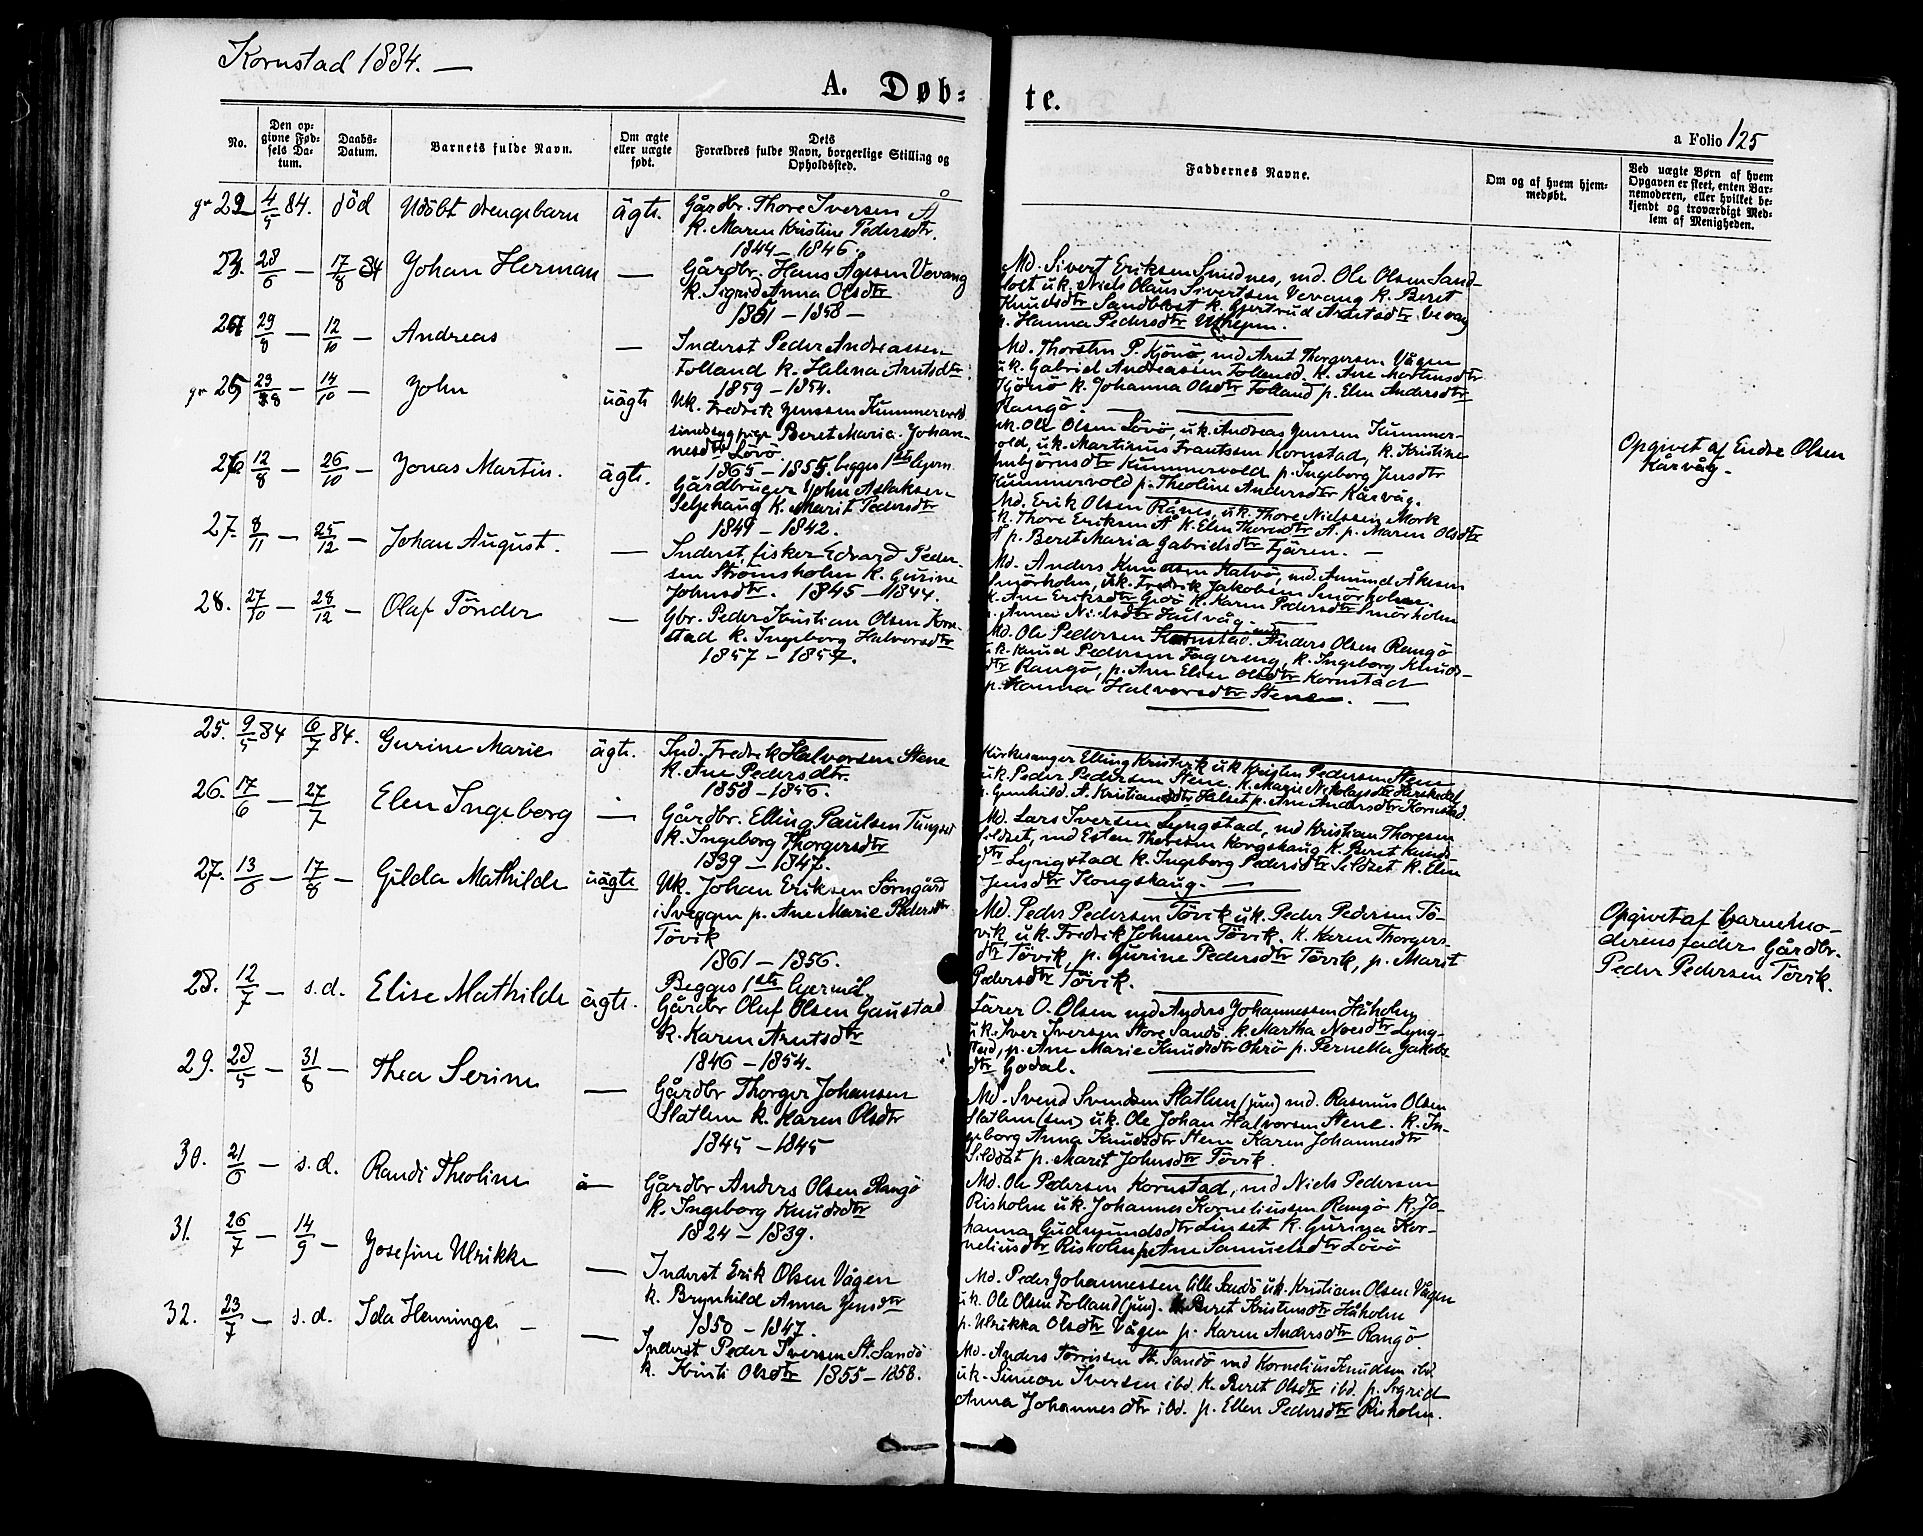 Kornstad 1884. —
A. Døb=
te.
a Folio 125
No.
Den op=
givne Fød=
sels Da=
tum.
Daabs=
Datum.
Barnets fulde Navn.
Om ægte
eller uægte
født.
Dets
Forældres fulde Navn, borgerlige Stilling og
Opholdssted.
Faddernes Navne.
Om og af hvem hjem=
medøbt.
Ved uægte Børn af hvem
Opgaven er skeet, enten Bar=
nemoderen, eller hvilket be=
kjendt og troværdigt Med=
lem af Menigheden.
22 4/5 84. död Udöbt drengebarn ägte. Gårdbr. Thore Iversen Å
k. Maren Kristine Pedersdtr.
1844 – 1846.
23. 28/6 — 17/8 84 Johan Herman — Gårdbr. Hans Ågesen Vevang
k. Sigrid Anna Olsdtr
1851 – 1858 –
Md. Sivert Eriksen Smidnes, md. Ole Olsen Sand-
blot uk. Niels Olaus Sivertsen Vevang k. Beret
Knudsdtr Sandblost k. Gjertrud Arntsdtr. Vevang
p. Hanna Pedersdtr
24 29/8 — 12/10 — Andreas — Inderst Peder Andreassen
Folland k. Helena Arntsdtr.
1859 – 1854.
Md. Thorsten P. Kjönö, md Arnt Thorgersen Vågen
uk. Gabriel Andreassen Folland. k. Ane Mortensdtr
Kjönö k. Johanna Olsdtr Folland p. Elen Andersdtr
Rangö.
25 23/8 — 14/10 — John uägte Uk. Fredrik Jenssen Kummervold
sindssyg pige Beret Maria Johan-
nesdtr Lövö
1865 – 1855. begges 1ste lejerm.
uk. Ole Olsen Lövö, uk. Andreas Jenssen Kummer-
vold, uk. Martinus Frantssen Kornstad, k. Kristine
Anbjörnsdtr Kummervold p. Ingeborg Jensdtr
Kummervold p. Theoline Andersdtr Kårvåg.
Opgivet af Endre Olsen
Kårvåg.
26 12/8 — 26/10 — Jonas Martin. ägte. Gårdbruger John Aslaksen
Seljehaug k. Marit Pedersdtr
1841 – 1842.
Md. Erik Olsen Rånes, uk. Thore Nielssen Mork
uk. Thore Eriksen Å k. Elen Thoresdtr Å. p. Maren Olsdtr
Å p. Beret Maria Gabrielsdtr Tjären. —
27. 8/11 — 25/12 — Johan August. — Inderst, fisker Edvard Peder-
sen Strömsholm k. Gurine
Johnsdtr. 1845 – 1844.
Md. Anders Knudsen Kalvö, md. Amund Åkesen
Smörholm, uk. Fredrik Jakobsen Smörholm,
k. Ane Eriksdtr k. Karen Pedersdtr Smörholm
p. Anna Nielsdtr Hulvåg.
28. 27/10 — 28/12 — Olaf Tönder — Gbr. Peder Kristian Olsen Korn-
stad k. Ingeborg Halvorsdtr
1857 – 1857.
Md. Ole Pedersen Kornstad. md Anders Olsen Rangö
uk. Knud Pedersen Fagereng, k. Ingeborg Knuds-
dtr Rangö, p. Ane Elise Olsdtr Kornstad
p. Hanna Halvorsdtr Stene. —
25. 9/5 84 6/7 84. Gurine Marie ägte. Ind. Fredrik Halvorsen Stene
k. Ane Pedersdtr.
1858 – 1856.
Kirkesanger Elling Kristvik uk Kristen Pedersen Stene
uk. Peder Pedersen Stene k. Marie Nikolaysdtr Herskedal
p. Gunhild A. Kristiansdtr Halset p. Ane Andersdtr Kornstad.
26. 17/6 — 27/7 Elen Ingeborg — Gårdbr. Elling Paulsen Tungset
k. Ingeborg Thorgersdtr
1839 – 1847.
Md. Lars Iversen Lyngstad, md Kristian Thoresen
Sildset, md Esten Thoresen Kongshaug k. Beret Knuds-
dtr Lyngstad k. Ingeborg Pedersdtr Sildset k. Elen
Jensdtr Kongshaug. —
27. 13/6 — 17/8 — Gilda Mathilde uägte Uk. Johan Eriksen Sörngård
i Sveggen p. Ane Marie Pedersdtr
Tövik
1861 – 1856.
Begges 1ste lejermål.
Md. Peder Pedersen Tövik uk. Peder Pedersen Tö-
vik uk. Fredrik Johnsen Tövik. k. Karen Thorgers-
dtr Tövik, p. Gurine Pedersdtr Tövik, p. Marit
Pedersdtr Tövik.
Opgivet af barnemo-
derens fader Gårdbr.
Peder Pedersen Tövik.
28. 12/7 — s.d. Elise Mathilde ägte. Gårdbr Oluf Olsen Gaustad
k. Karen Arntsdtr
1846 – 1854.
Lärer O. Olsen md Anders Johannessen Håholm
uk. Iver Iversen Store Sandö. k. Martha Noesdtr Lyng-
stad, p. Ane Marie Knudsdtr Okrö p. Pernella Jakobs-
dtr Godal.
29. 28/5 — 31/8 — Thea Serine — Gårdbr Thorger Johansen
Slatlem k. Karen Olsdtr
1845 – 1845
Md. Svend Svendsen Slatlem (jun) md. Rasmus Olsen
Slatlem (sen) uk. Ole Johan Halvorsen Stene. k. In-
geborg Anna Knudsdtr Stene Karen Johannesdtr
Sildset p. Marit Johnsdtr Tövik.
30. 21/6 — s.d. Randi Theoline ä— Gårdbr Anders Olsen Rangö
k. Ingeborg Knudsdtr
1824 – 1839.
Md. Ole Pedersen Kornstad, md Niels Pedersen
Risholm uk. Johannes Korneliussen Rangö k. Jo-
hanna Gudmundsdtr Linset k. Gurina Kor-
neliusdtr Risholm p. Ane Samuelsdtr Lövö
31. 26/7 — 14/9 — Josefine Ulrikke — Inderst Erik Olsen Vågen
k. Brynhild Anna Jensdtr
1850 – 1847.
Md. Peder Johannessen lille Sandö uk. Kristian Olsen Vågen
uk. Ole Olsen Folland (jun). k. Beret Kristensdtr Håholm
p. Ulrikka Olsdtr Vågen p. Karen Andersdtr Rangö
32. 23/7 — s.d. Ida Henninge. — — Inderst Peder Iversen St. Sandö
k. Kristi Olsdtr 1855 – 1858.
Md. Anders Törrissen St. Sandö md Kornelius Knudsen ibd
uk. Simeon Iversen ibd. k. Beret Olsdtr ibd. p. Sigrid
Anna Johannesdtr ibd. p. Ellen Pedersdtr Risholm.